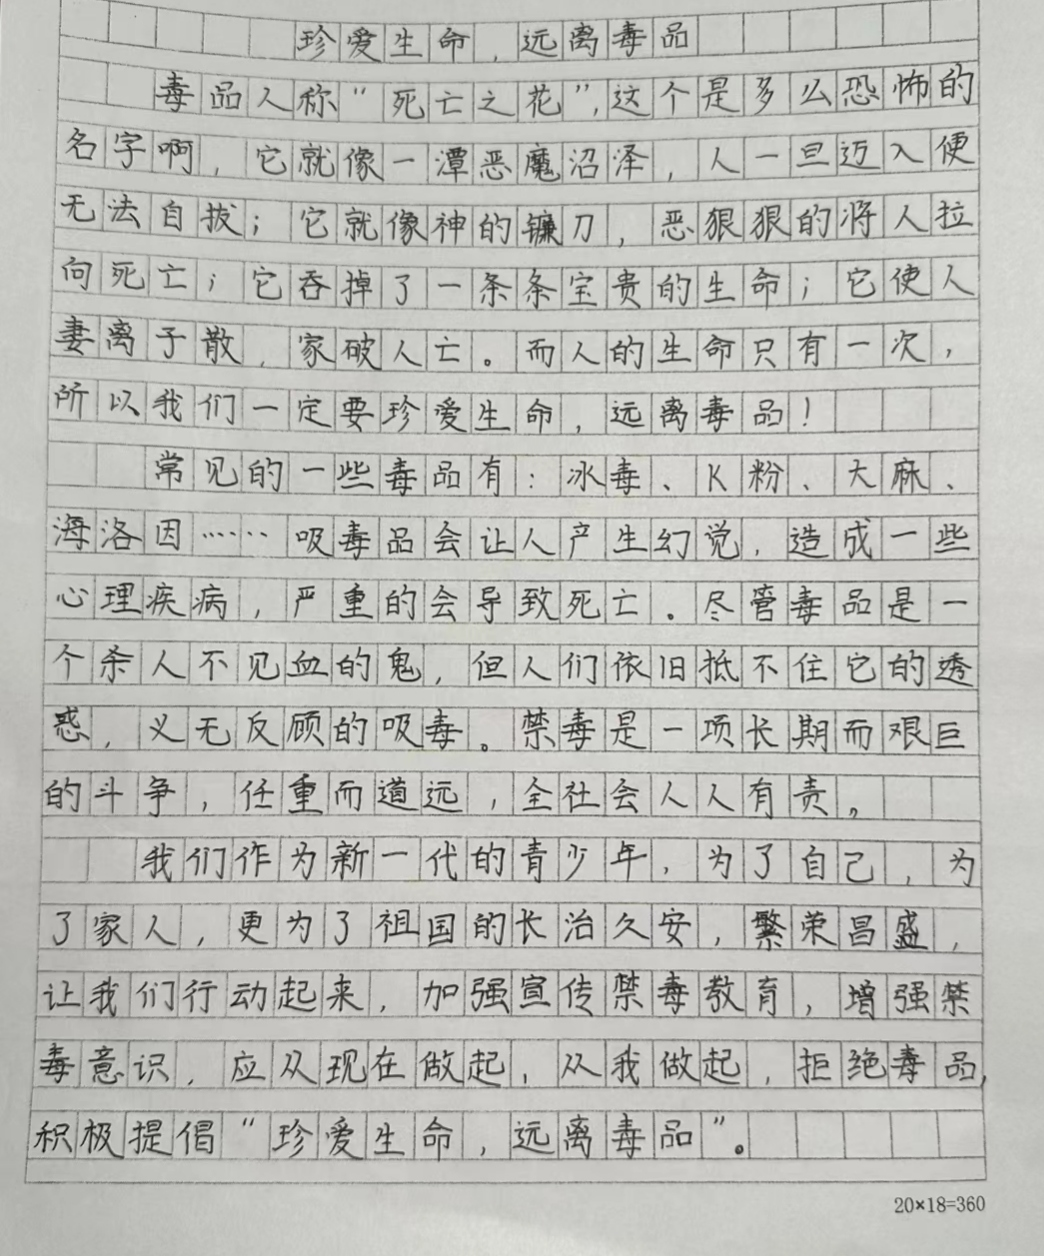 珍爱生命，远离毒品
毒品人称“死亡之花”，这个是多么恐怖的
名字啊，它就像一潭恶魔沼泽，人一旦迈入便
无法自拔；它就像神的镰刀，恶狠狠的将人拉
向死亡；它吞掉了一条条宝贵的生命；它使人
妻离子散，家破人亡。而人的生命只有一次，
所以我们一定要珍爱生命，远离毒品！
常见的一些毒品有：冰毒、K粉、大麻、
海洛因……吸毒品会让人产生幻觉，造成一些
心理疾病，严重的会导致死亡。尽管毒品是一
个杀人不见血的鬼，但人们依旧抵不住它的透
惑，义无反顾的吸毒。禁毒是一项长期而艰巨
的斗争，任重而道远，全社会人人有责。
我们作为新一代的青少年，为了自己，为
了家人，更为了祖国的长治久安，繁荣昌盛，
让我们行动起来，加强宣传禁毒教育，增强禁
毒意识，应从现在做起，从我做起，拒绝毒品，
积极提倡“珍爱生命，远离毒品”。
20×18=360